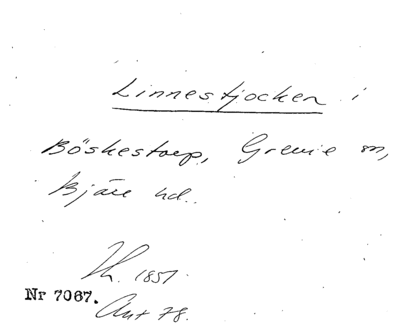 Linnestjocken i
Böskestorp, Grevie sn,
Bjäre hd.
Th. 1851.
Nr 7067.
Ant 78.